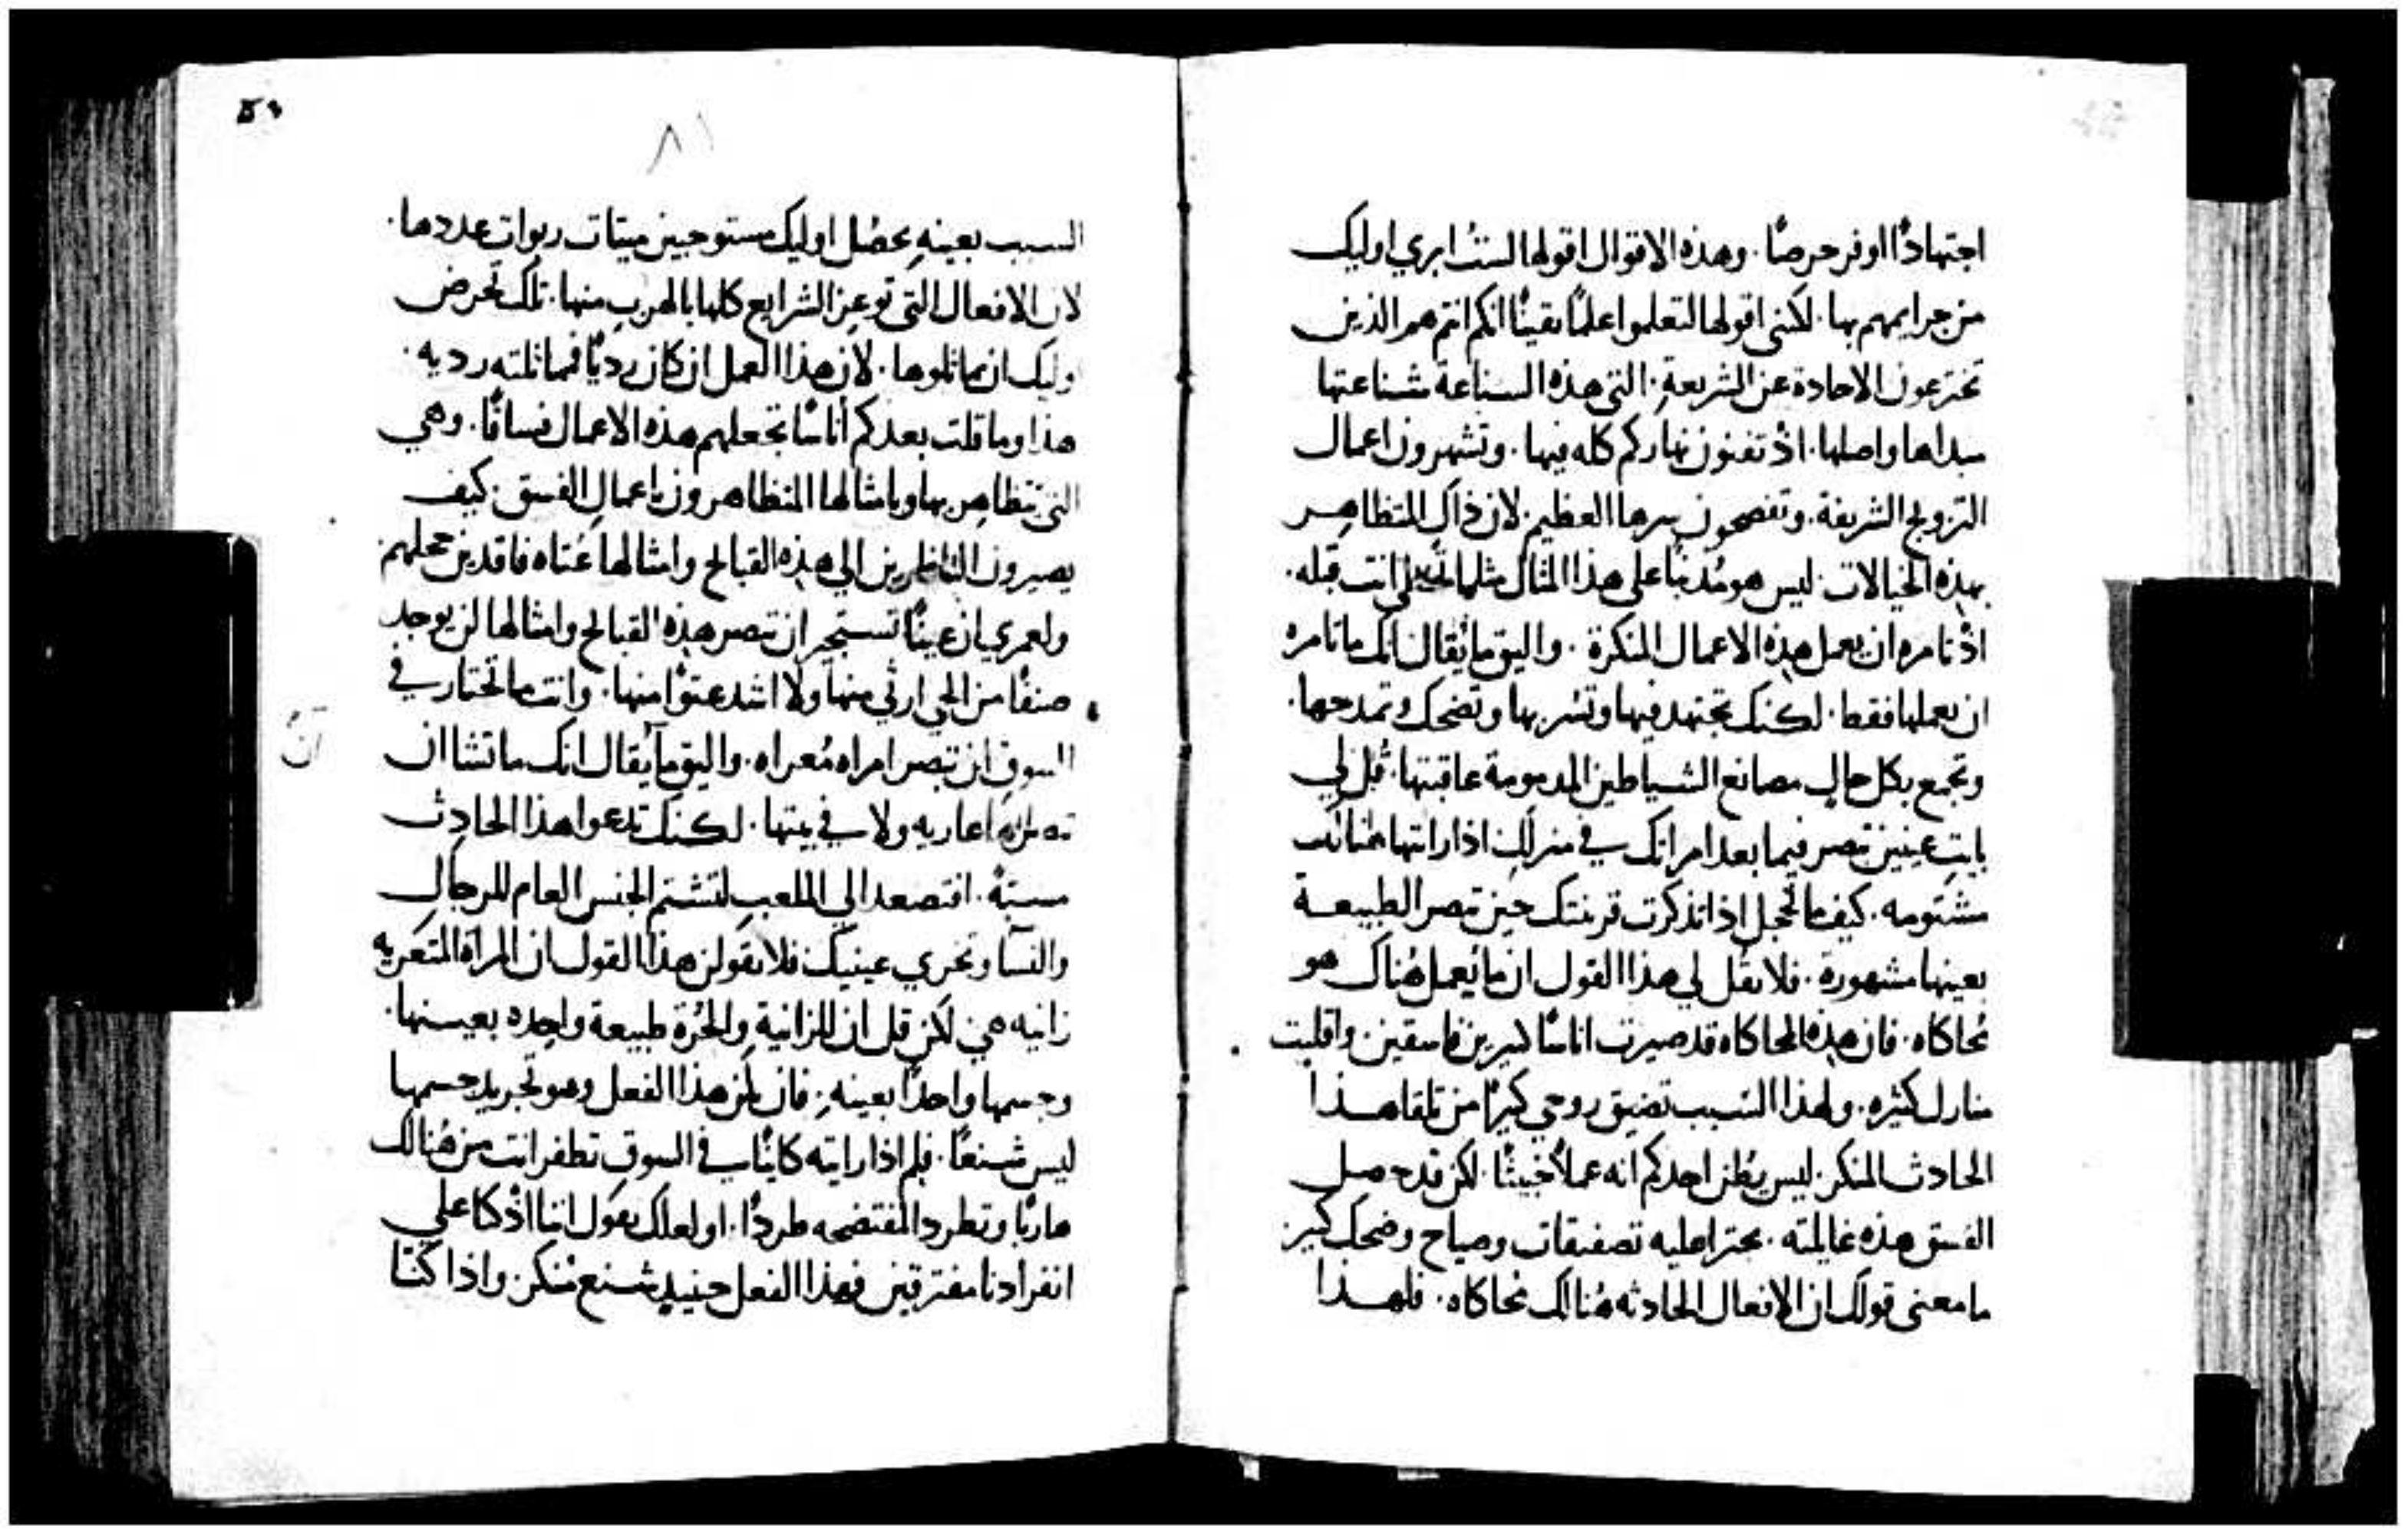 اجتهادًا اوفر حرصًا. وهذه الاقوال اقولها لستُ ابري اوليك
من جرايمهم بها. لكنني اقولها لتعلموا علمًا يقينًا انكم انتم هم الذين
تخترعون الاحادة عن الشريعةِ. التي هذه الشناعة شناعتها
مبداها واصلها. اذ تفنون نهاركم كله فيها. وتشهرون اعمال
التزويج الشريفة. وتفضحون سرها العظيم. لان ذاك المتظاهر
بهذه الخيالات. ليس هو مُذنبًا على هذا المثال مثلما انت قبله.
اذ تامره ان يعمل هذه الاعمال المنكرة. واليق ما يُقال انك ما تامره
ان يعملها فقط. لكنك تجتهد فيها وتسُر بها وتضحك وتمدحها.
وتجمع بكل حالٍ مصانع الشياطين المذمومة عاقبتها. قُل لي
بايتِ عينين تبصر فيما بعد امراتك في منزلك اذا رايتها هناك
مشتومه. كيف ما تخجل اذا تذكرت قرينتك حين تبصر الطبيعة
بعينها مشهورة. فلا تقُل لي هذا القول ان ما يُعمل هُناك هو
مُحاكاه. فان هذه المحاكاه قد صيرت اناسًا كثيرين فاسقين. واقلبت
منازل كثيره. ولهذا السبب تضيق روحي كثيرًا من تلقا هذا
الحادث المنكر. ليس يُظن احدكم انه عملاً خبيثًا. لكن قد حصل
الفسق هذه غايلته. يجترا عليه تصفيقات وصياح وضحك كثير
ما معنى قولك ان الافعال الحادثه هُنالك مُحاكاه. فلهذا
٨١
السبب بعينهِ يحصُل اوليك مستوجبين ميتات ربوات عددها.
لان الافعال التي توعز الشرايع كلها بالهربِ منها. تلك تحرض
اوليك ان يماثلوها. لان هذا العمل ان كان رديًا فمماثلته رديه.
هذا وما قلت بعد كم أناسًا تجعلهم هذه الاعمال فساقًا. وهي
التي تتظاهر بها وبامثالها المتظاهرون باعمالِ الفسق. كيف
يصيرون الناظرين الي هذه القبايح وامثالها عُتاه فاقدين خجلهم
ولعمري ان عينًا تستجير ان تبصر هذه القبايح وامثالها لن يوجد
صنفًا من الحي ارثي منها ولا اشد عتوًا منها. وانت ما تختار في
السوق ان تبصر امراه مُعراه. واليق ما يُقال انك ما تشا ان
تبصر امراه عاريه ولا في بيتها. لكنك تدعوا هذا الحادث
مسبةً. افتصعد الي الملعبِ لتشتم الجنس العام للرجال
والنسآ وتخزي عينيك فلا تقولن هذا القول ان المراة المتعريه
زانيه هي لكن قل ان للزانيةِ والحُرة طبيعة واحِده بعينها.
وجسمها واحدًا بعينهِ. فان يكن هذا الفعل وهو تجريد جسمها
ليس شنعًا. فلم اذا رايته كاينًا في السوق تطفر انت من هُنالك
هاربًا وتطرد المفتضحه طردًا. او لعلك تقول اننا اذ كنا علي
انفرادنا مفترقين فهذا الفعل حينيذٍ شنع مُنكر. واذا كنا